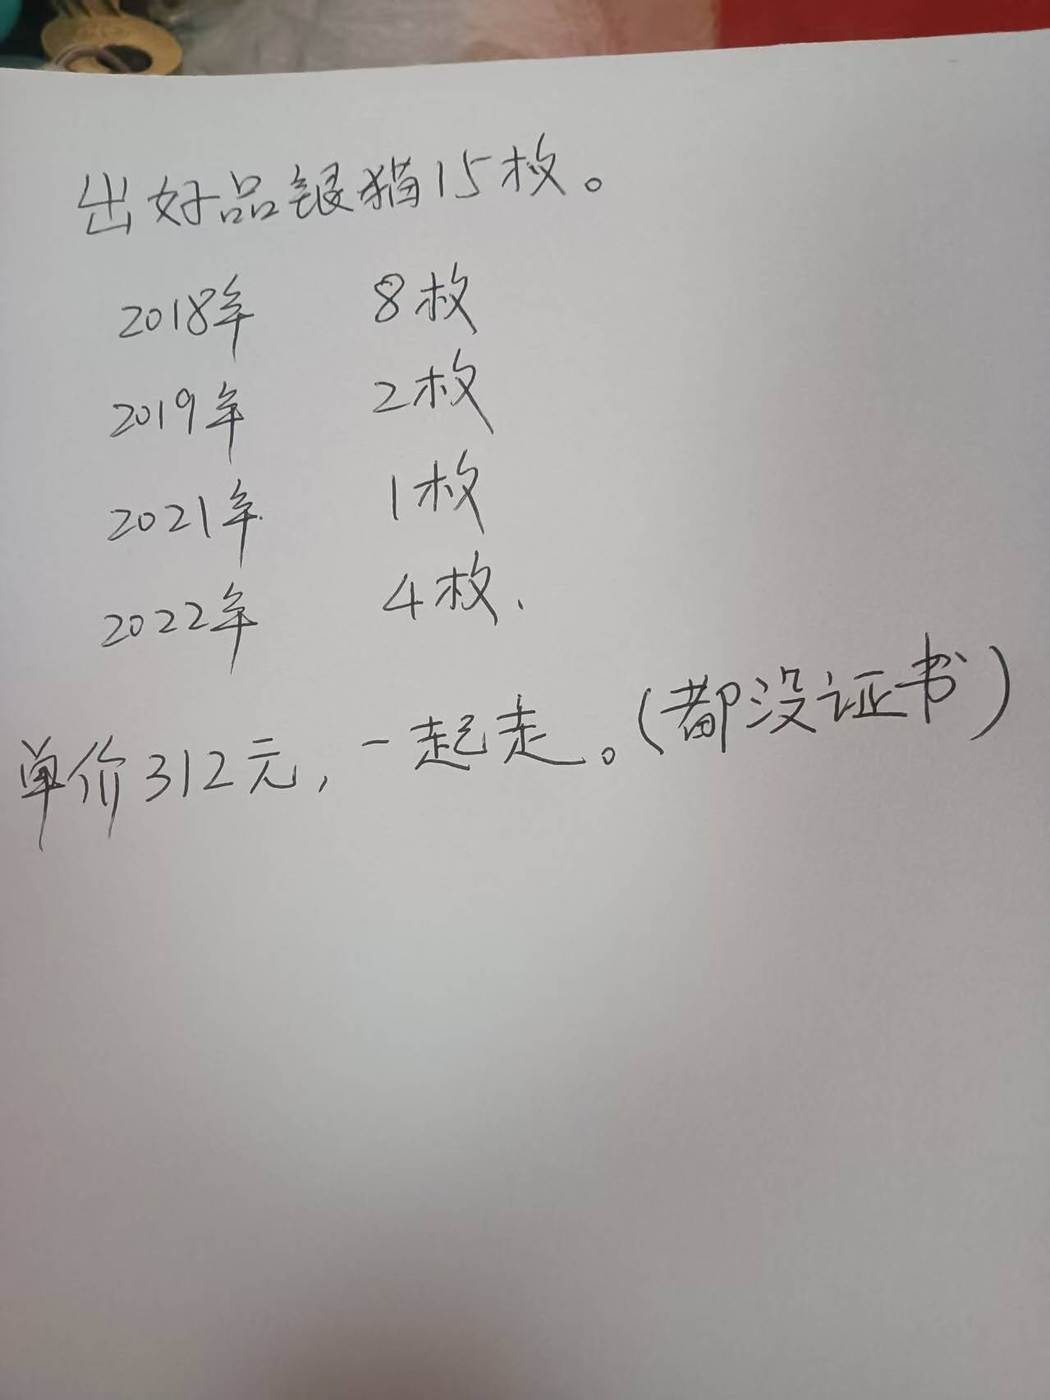 出好品银猫15枚。
2018年 8枚
2019年 2枚
2021年 1枚
2022年 4枚、
单价312元，一起走。(都没证书)